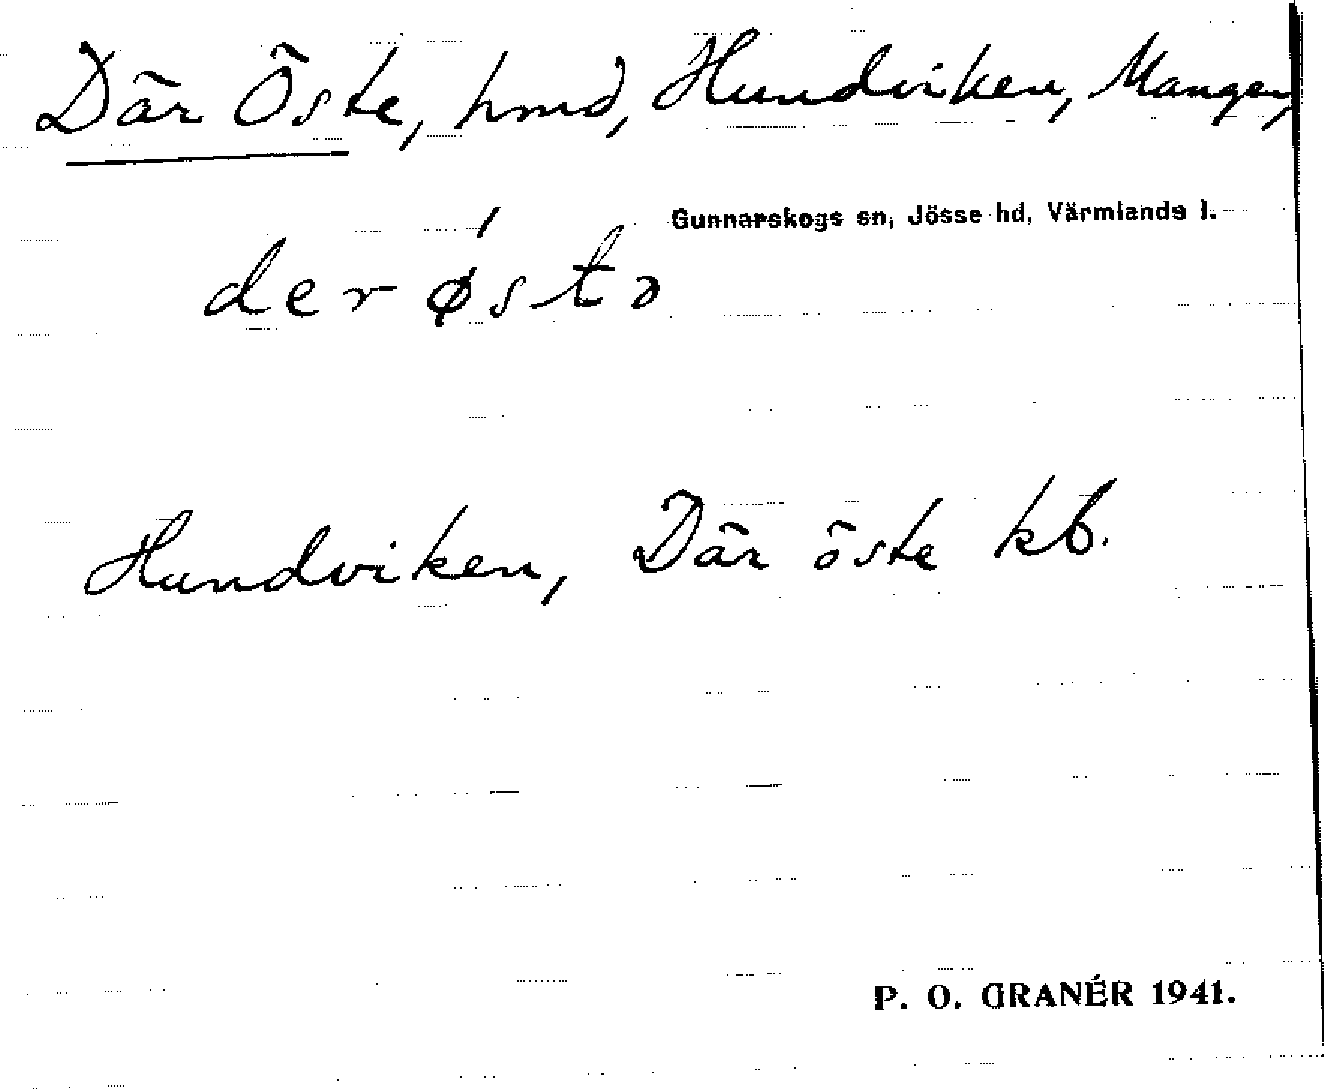 Där Öste, hmd, Hundviken, Mangen,
Gunnarskogs sn, Jösse hd, Värmlands l.
der ǿstə
Hundviken, Där öste kb.
P. O. GRANÉR 1941.